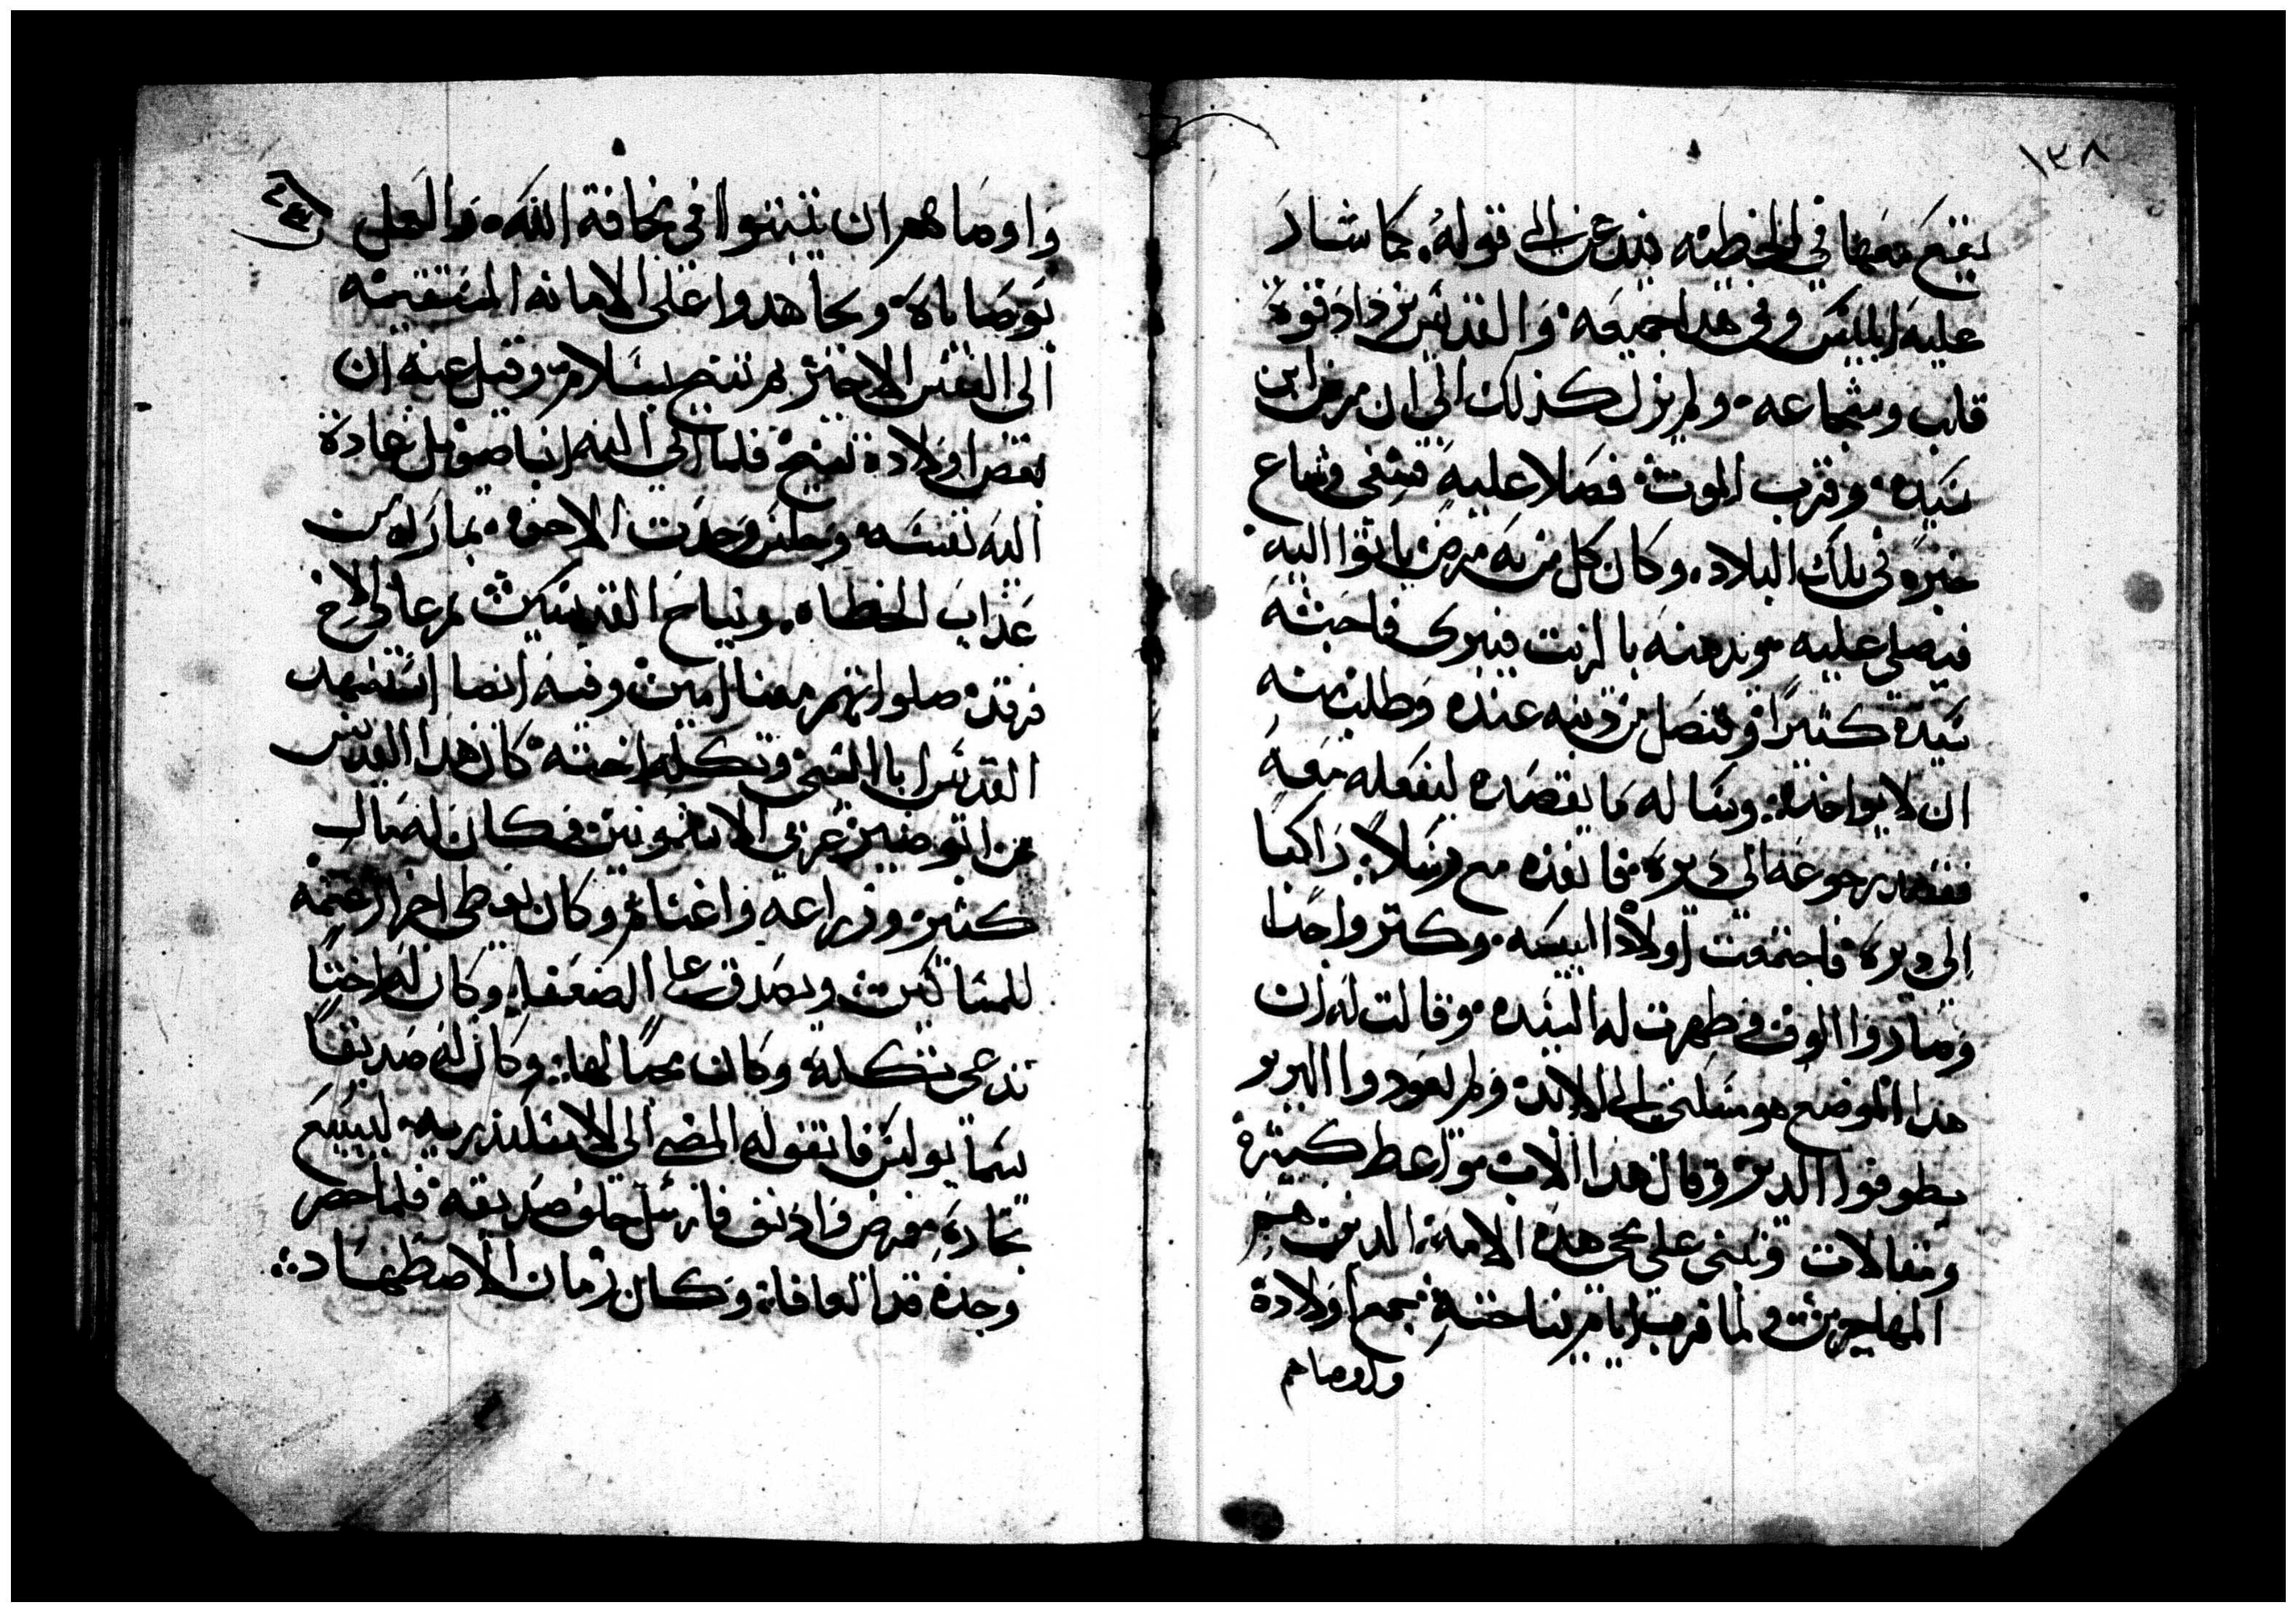 ١٣٨
يقع معها في الخطيه فلم يدعن الى قوله. كما شار
عليه ابليس وفي هدا جميعه والقديس يزداد قوة
قلب وشجاعه ولم يزل كذلك الى ان مرض ابن
سيده وقرب الموت فصلا عليه فشفى وشاع
خبره في تلك البلاد. وكان كل من به مرض ياتوا اليه
فيصلى عليه ويدهنه بالزيت فيبرى فاحبته
سيده كثيرًا وتنصل من دنبه عنده وطلب منه
ان لا يواخذه وساله ما يقصده ليفعله معه
فقصد رجوعه الى ديره فانفذه مع رسلاً راكبا
الى ديره فاجتمعت اولاد البيعه وكتر واجدا
وصاروا الوف وظهرت له السيده وقالت له ان
هدا الموضع هو مسكني الى الابد ولم يعودوا البربر
يطوفوا الدير وقال هدا الاب مواعظ كثيرة
ومقالات وتنبى على مجى هده الامه الدين هم
المهاجرين ولما قرب ايام نياحته جمع اولاده
واوصاهم
واوصاهم ان يثبتوا في مخافة الله والعمل
بوصاياه ويجاهدوا على الامانه المستقيمه
الى النفس الاخير ثم تنيح بسلام وقيل عنه ان
بعض اولاده تنيح فلما الى انبا صمويل عادة
اليه نفسه وجلس وحدت الاخوه بما راه من
عذاب الخطاه ونياح القديسين ثم عاد الاخ
فرقد صلواتهم معنا امين وفيه ايضا استشهد
القديس ابا السي وتكله اخته كان هدا القديس
من ابو صير غربي الاشمونين فكان له مال
كثير وزراعه واغنام وكان يعطى اجر الغنم
للمساكين ويصدق على الضعفا وكان له اختا
تدعى تكله وكان محبا لها وكان له صديقا
يسما بولس فاتفق له المضى الى الاسكندريه ليبيع
تجاره مرض وادنف فارسل خلف صديقه فلما حضر
وجده قد اتعافا وكان زمان الاضطهاد